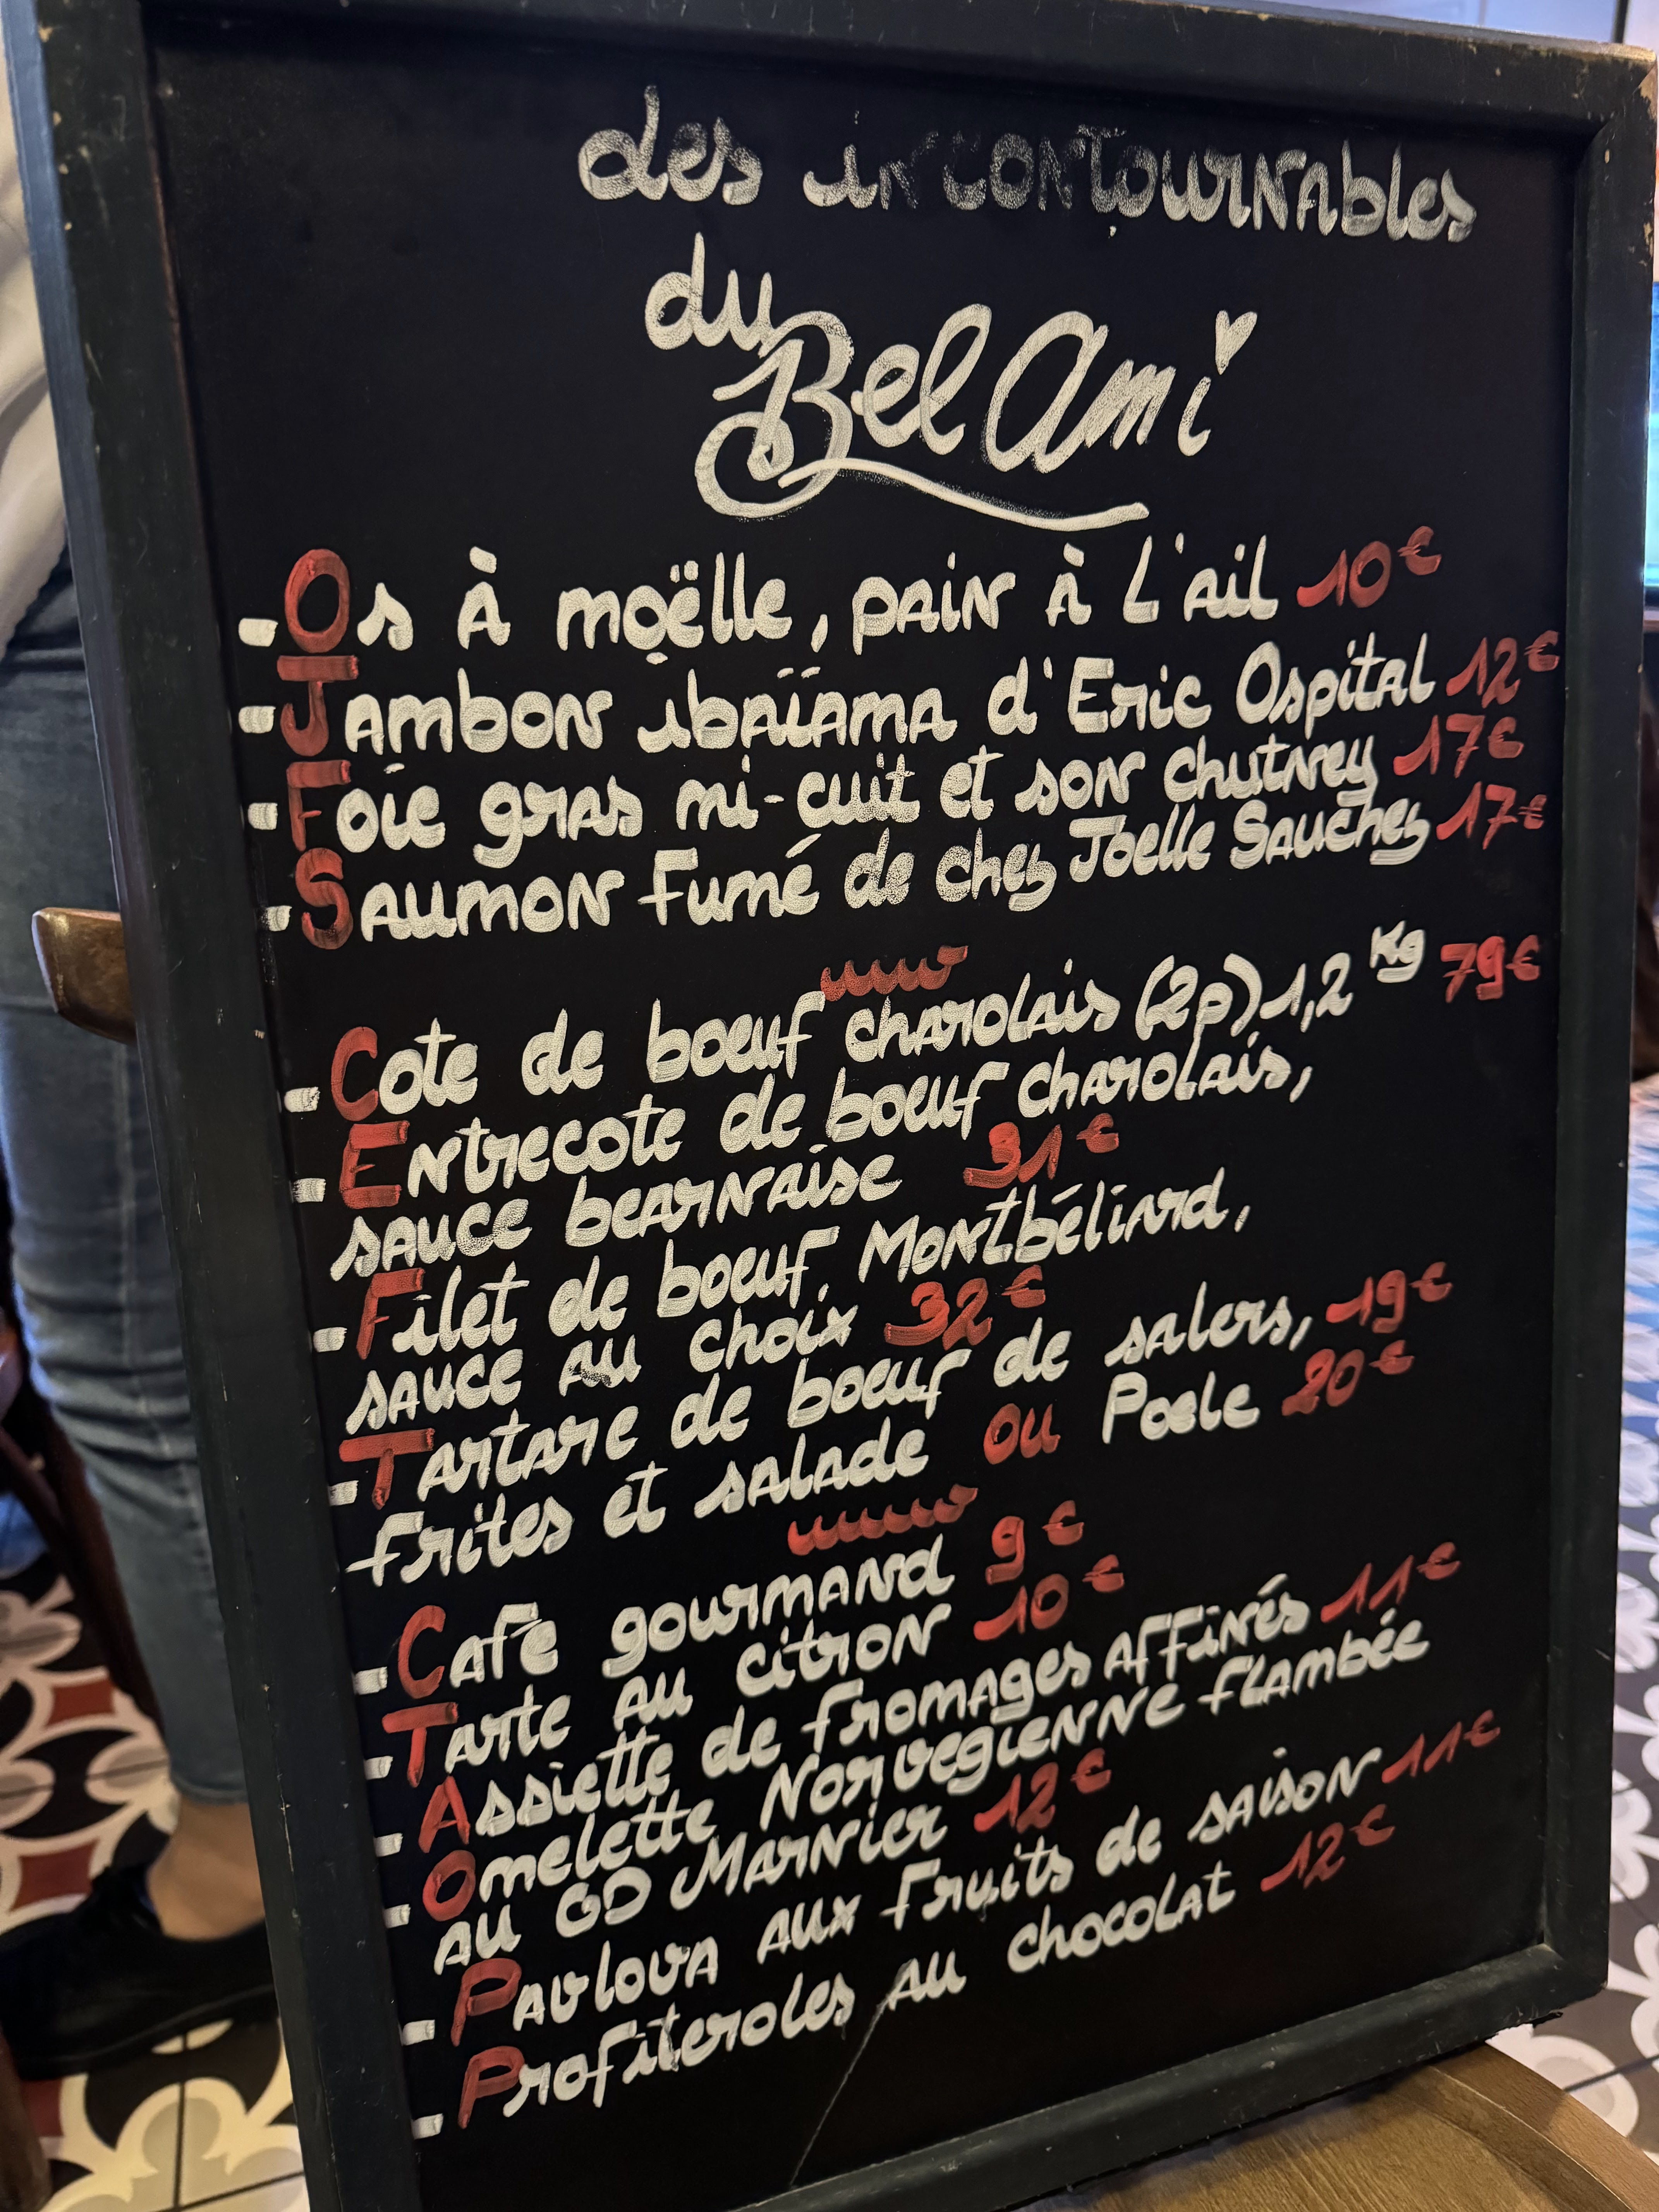 des incontournables
du
Bel Ami
- Os à moëlle, pain à l'ail 10€
- Jambon ibaïama d'Eric Ospital 12€
- Foie gras mi-cuit et son chutney 17€
- Saumon fumé de chez Joelle Sauchez 17€
- Cote de boeuf charolais (2p) 1,2 Kg 79€
- Entrecote de boeuf charolais,
sauce bearnaise 31€
- Filet de boeuf Montbéliard,
sauce au choix 32€
- Tartare de boeuf de salers, 19€
frites et salade ou Poele 20€
- Café gourmand 9€
- Tarte au citron 10€
- Assiette de fromages affinés 11€
- Omelette Norvegienne flambée
au GD Marnier 12€
- Pavlova aux fruits de saison 11€
- Profiteroles au chocolat 12€